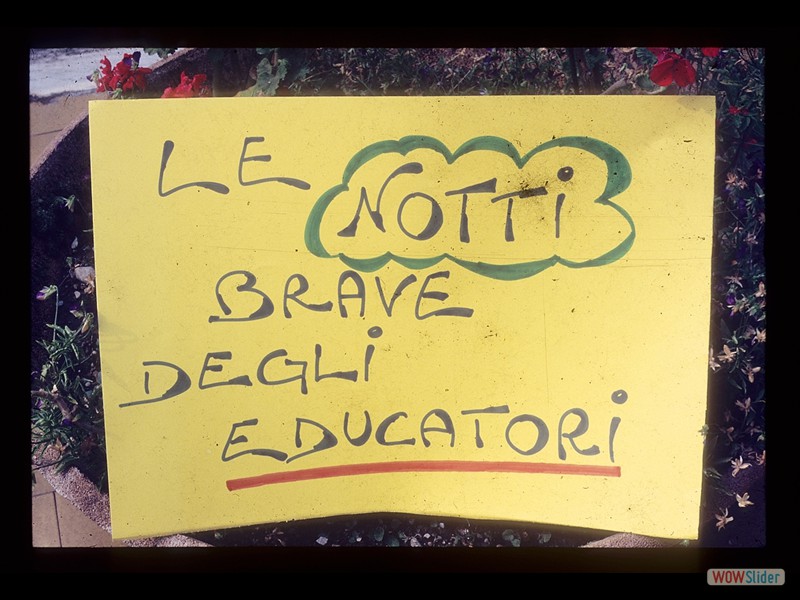 LE NOTTI
BRAVE
DEGLI
EDUCATORI
WOWSlider